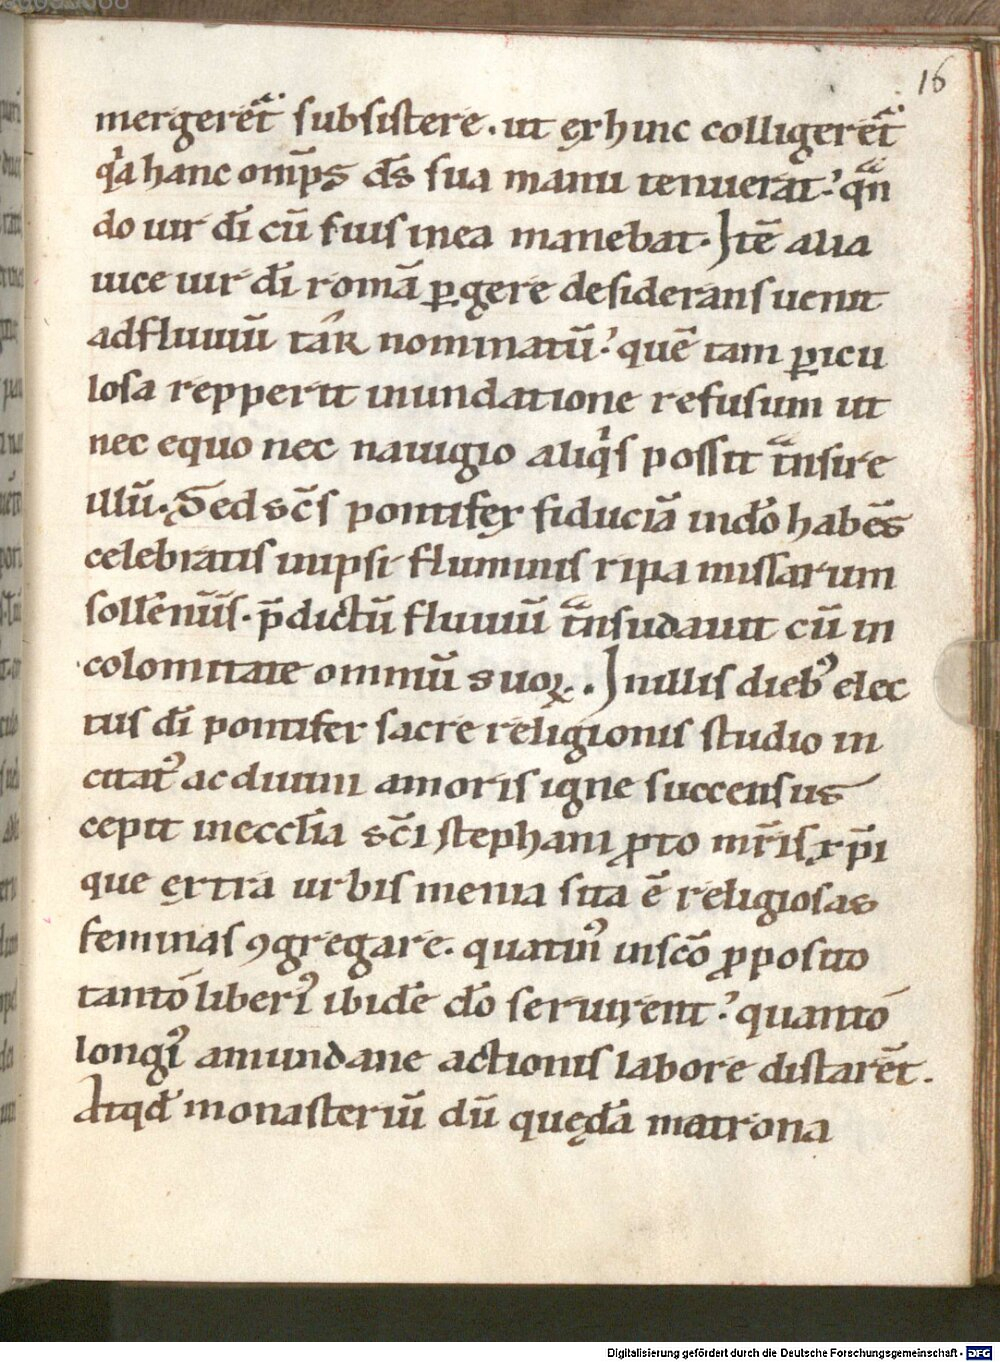 16
mergeretᷓ subsistere. ut ęx hinc colligeretᷓ
qͥa hanc omp̅s d̅s sua manu tenuerat. qn̅
do uir di̅ cu̅ suis in ea manebat. Ite̅ alia
uice uir di̅ roma̅ ꝑgere desiderans uenit
ad fluuiu̅ tar̅ nominatu̅. que̅ tam ꝑicu
losa repperit inundatione refusum ut
nec equo nec nauigio aliqͥs possit tᷓnsire
illu̅. Sed sc̅s pontifex fiducia̅ in do̅ habe̅s
celebratis in ipsi fluminis ripa missarum
solle̅niis. p̅dictu̅ fluuiu̅ tᷓnsudauit cu̅ in
colomitate omniu̅ suoꝝ. In illis dieb᷒ elec
tus di̅ pontifex sacre religionis studio in
citat᷒ ac diuini amoris igne succensus
cepit in eccl̅ia sc̅i stephani ꝓto mr̅is xp̅i
que ęxtra urbis menia sita e̅ religiosas
feminas ꝯgregare. quatin᷒ in sc̅o ꝓposito
tanto liberi᷒ ibide̅ do̅ seruirent. quanto
longi᷒ a mundane actionis labore distare̅t.
Atqd̅ monasteriu̅ du̅ quęda̅ matrona
Digitalisierung gefördert durch die Deutsche Forschungsgemeinschaft - DFG